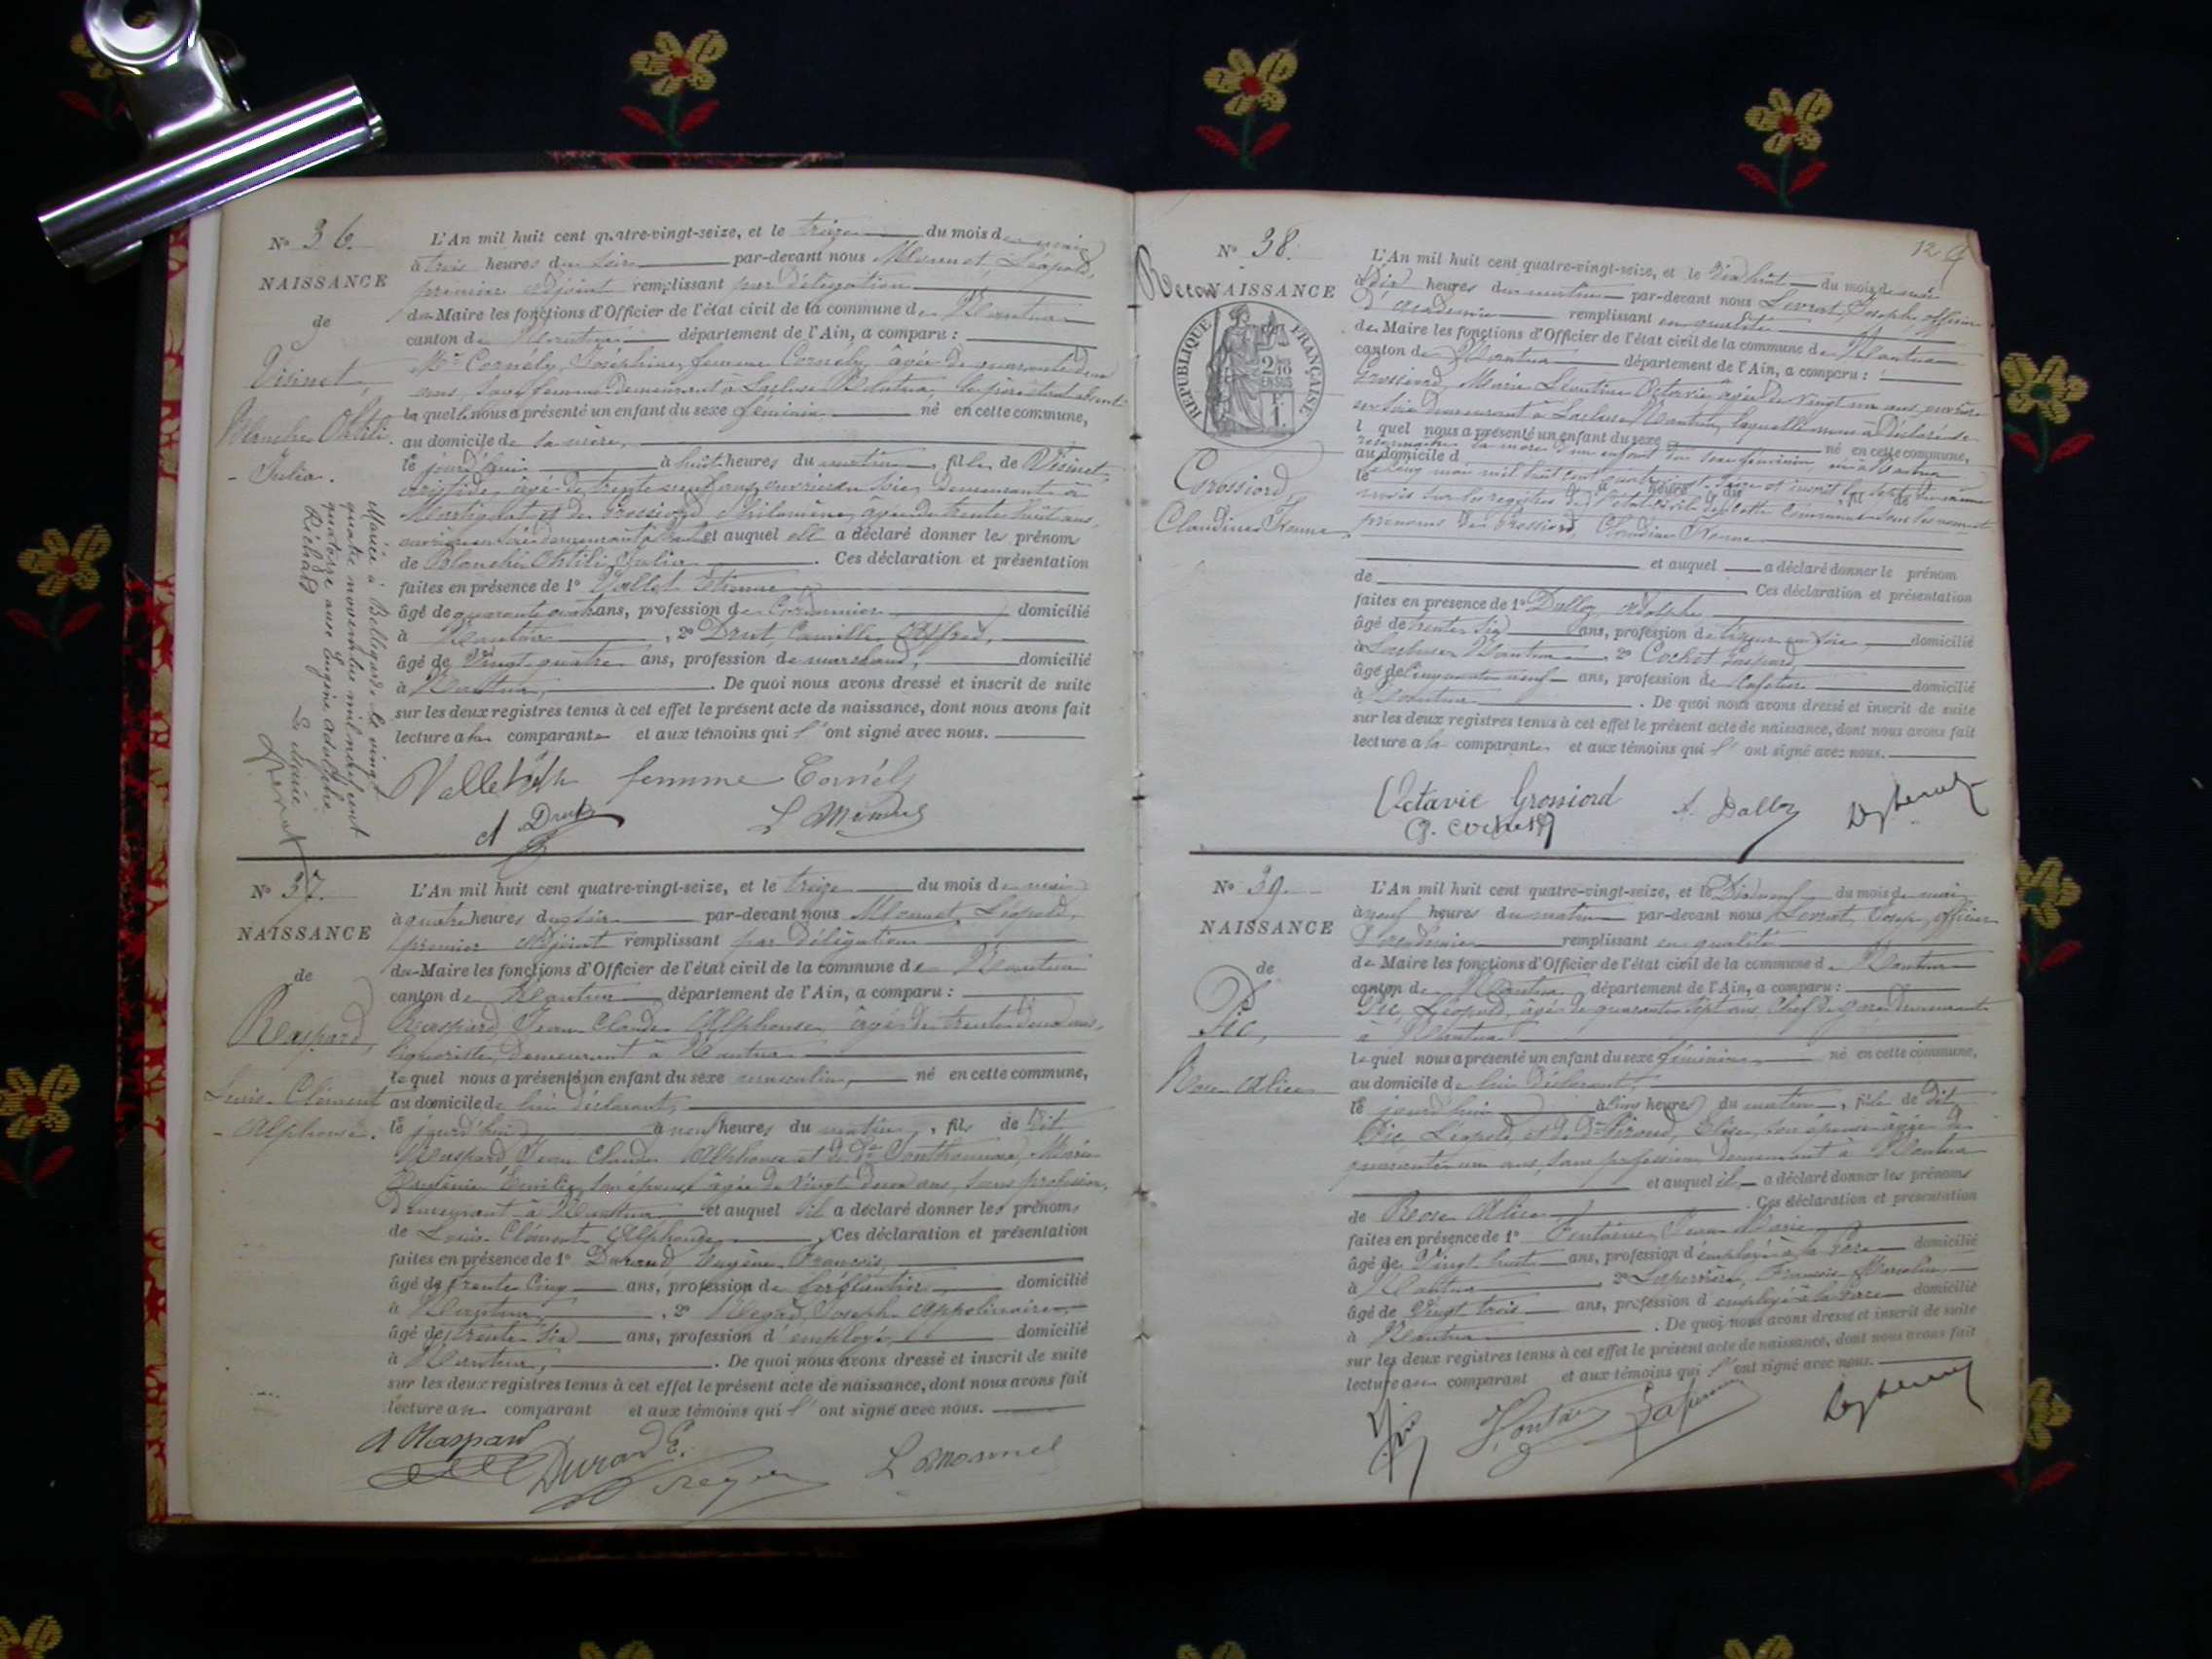 N° 36.
NAISSANCE
de
Visinet,
Blanche
Julia.
Mariée à Bellegarde le vingt
quatre novembre mil neuf cent
quatorze avec Eugène Adolphe
Le Maire
L'An mil huit cent quatre-vingt-seize, et le treize du mois de mai
à trois heures du soir par-devant nous Monnet, Léopold,
premier adjoint remplissant par délégation
du Maire les fonctions d'Officier de l'état civil de la commune de Nantua
canton de Nantua département de l'Ain, a comparu :
Me Cornély, Joséphine, femme Cornély, âgée de quarante deux
ans, sage femme demeurant à Nantua, le père étant absent
laquelle nous a présenté un enfant du sexe féminin né en cette commune,
au domicile de sa mère,
le jourd'hui à huit heures du matin, fille de Visinet
Aristide, âgé de trente neuf ans, ouvrier en soie, demeurant à
Martignat et de Grossiord Philomène, âgée de trente huit ans,
ouvrière en soie demeurant à et auquel elle a déclaré donner les prénoms
de Blanche Julia. Ces déclaration et présentation
faites en présence de 1° Vallet Etienne
âgé de quarante quatre ans, profession de Cordonnier domicilié
à Nantua, 2° Drut, Camille Alfred,
âgé de vingt quatre ans, profession de marchand, domicilié
à Nantua, . De quoi nous avons dressé et inscrit de suite
sur les deux registres tenus à cet effet le présent acte de naissance, dont nous avons fait
lecture à la comparante et aux témoins qui l'ont signé avec nous.
Vallet femme Cornély
A Drut L Monnet
N° 37.
NAISSANCE
de
Raspard,
Louis-Clément
-Alphonse.
L'An mil huit cent quatre-vingt-seize, et le treize du mois de mai
à quatre heures du soir par-devant nous Monnet, Léopold,
premier adjoint remplissant par délégation
du Maire les fonctions d'Officier de l'état civil de la commune de Nantua
canton de Nantua département de l'Ain, a comparu :
Raspard, Jean Claude Alphonse, âgé de trente deux ans,
liquoriste, demeurant à Nantua
lequel nous a présenté un enfant du sexe masculin, né en cette commune,
au domicile de lui déclarant,
le jourd'hui à neuf heures du matin, fils de dit
Raspard Jean Claude Alphonse et de De Marie
Eugénie Emilie, son épouse âgée de vingt deux ans, sans profession,
demeurant à Nantua et auquel il a déclaré donner les prénoms
de Louis-Clément Alphonse. Ces déclaration et présentation
faites en présence de 1° Durand, Eugène François
âgé de trente cinq ans, profession de ferblantier domicilié
à Nantua, 2° Joseph Appolinaire,
âgé de trente six ans, profession d'employé, domicilié
à Nantua, . De quoi nous avons dressé et inscrit de suite
sur les deux registres tenus à cet effet le présent acte de naissance, dont nous avons fait
lecture au comparant et aux témoins qui l'ont signé avec nous.
A Raspard Durand E. L Monnet
12
N° 38.
NAISSANCE
RÉPUBLIQUE FRANÇAISE.
2/10
EN SUS
Grossiord
Claudine
L'An mil huit cent quatre-vingt-seize, et le dix huit du mois de mai
à dix heures du matin par-devant nous Levrat, Joseph, officier
d'académie remplissant en qualité
de Maire les fonctions d'Officier de l'état civil de la commune de Nantua
canton de Nantua département de l'Ain, a comparu :
Grossiord, Marie Léontine Octavie, âgée de vingt un ans, ouvrière
en soie demeurant à Nantua, laquelle nous a déclaré se
l quel nous a présenté un enfant du sexe né en cette commune,
reconnaître la mère d'un enfant du sexe féminin né à Nantua
au domicile d
le cinq mai mil huit cent quatre vingt seize et inscrit le
le heure du , fil de
mois sur les registres de l'état civil de cette commune sous les nom et
prénoms de Grossiord, Claudine
et auquel a déclaré donner le prénom
de . Ces déclaration et présentation
faites en présence de 1° Dalloz, Adolphe
âgé de trente six ans, profession de en soie domicilié
à Nantua, 2° Cochet Gaspard,
âgé de cinquante neuf ans, profession de cafetier domicilié
à Nantua . De quoi nous avons dressé et inscrit de suite
sur les deux registres tenus à cet effet le présent acte de naissance, dont nous avons fait
lecture à la comparante et aux témoins qui l'ont signé avec nous.
Octavie Grossiord A. Dalloz
G. Cochet
N° 39.
NAISSANCE
de
Pic,
Rose Alice
L'An mil huit cent quatre-vingt-seize, et le dix neuf du mois de mai
à neuf heures du matin par-devant nous Levrat, Joseph, officier
d'académie remplissant en qualité
de Maire les fonctions d'Officier de l'état civil de la commune de Nantua
canton de Nantua département de l'Ain, a comparu :
Pic, Léopold, âgé de quarante sept ans, Chef de gare demeurant
à Nantua
lequel nous a présenté un enfant du sexe féminin né en cette commune,
au domicile de lui déclarant,
le jourd'hui à cinq heures du matin, fille de dit
Pic, Léopold, et de De Giroud, Elise, son épouse âgée de
quarante un ans, sans profession demeurant à Nantua
et auquel il a déclaré donner les prénoms
de Rose Alice . Ces déclaration et présentation
faites en présence de 1° Fontaine, Jean Marie
âgé de vingt huit ans, profession d'employé à la gare domicilié
à Nantua, 2° François Marcelin
âgé de vingt trois ans, profession d'employé à la gare domicilié
à Nantua . De quoi nous avons dressé et inscrit de suite
sur les deux registres tenus à cet effet le présent acte de naissance, dont nous avons fait
lecture au comparant et aux témoins qui l'ont signé avec nous.